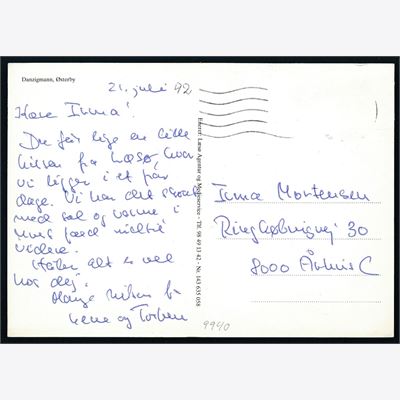 Danzigmann, Østerby
21. juli 92
Kære Irma!
Du får lige en lille
hilsen fra Læsø, hvor
vi ligger i et par
dage. Vi har det
med sol og varme i
videre.
Håber alt er vel
hos dig.
Mange hilsner fr
Lene og Torben
Eneret: Læsø Agentur og Mediaservice - Tlf. 98 49 11 42 - No. 143 635 058
Irma Mortensen
Ringkøbingvej 30
8000 Århus C
9940